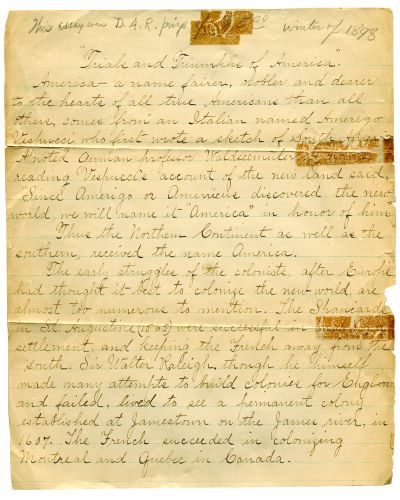 This essay won D.A.R. prize winter of 1898
"Trials and Triumphs of America".
America — a name fairer, nobler and dearer
to the hearts of all true Americans than all
others, comes from an Italian named Amerigo
Vespucci who first wrote a sketch of South
A noted German professor Waldseemuller
reading Vespucci's account of the new land said,
"Since Amerigo or Americus discovered the new
world, we will name it "America" in honor of him."
Thus the Northern Continent as well as the
southern, received the name America.
The early struggles of the colonists, after Europe
had thought it best to colonize the new world, are
almost too numerous to mention. The Spaniards
in St. Augustine (1565) were successful in
settlement, and keeping the French away from the
south. Sir Walter Raleigh, though he himself
made many attempts to build colonies for England
and failed, lived to see a permanent colony
established at Jamestown on the James river, in
1607. The French succeeded in colonizing
Montreal and Quebec in Canada.